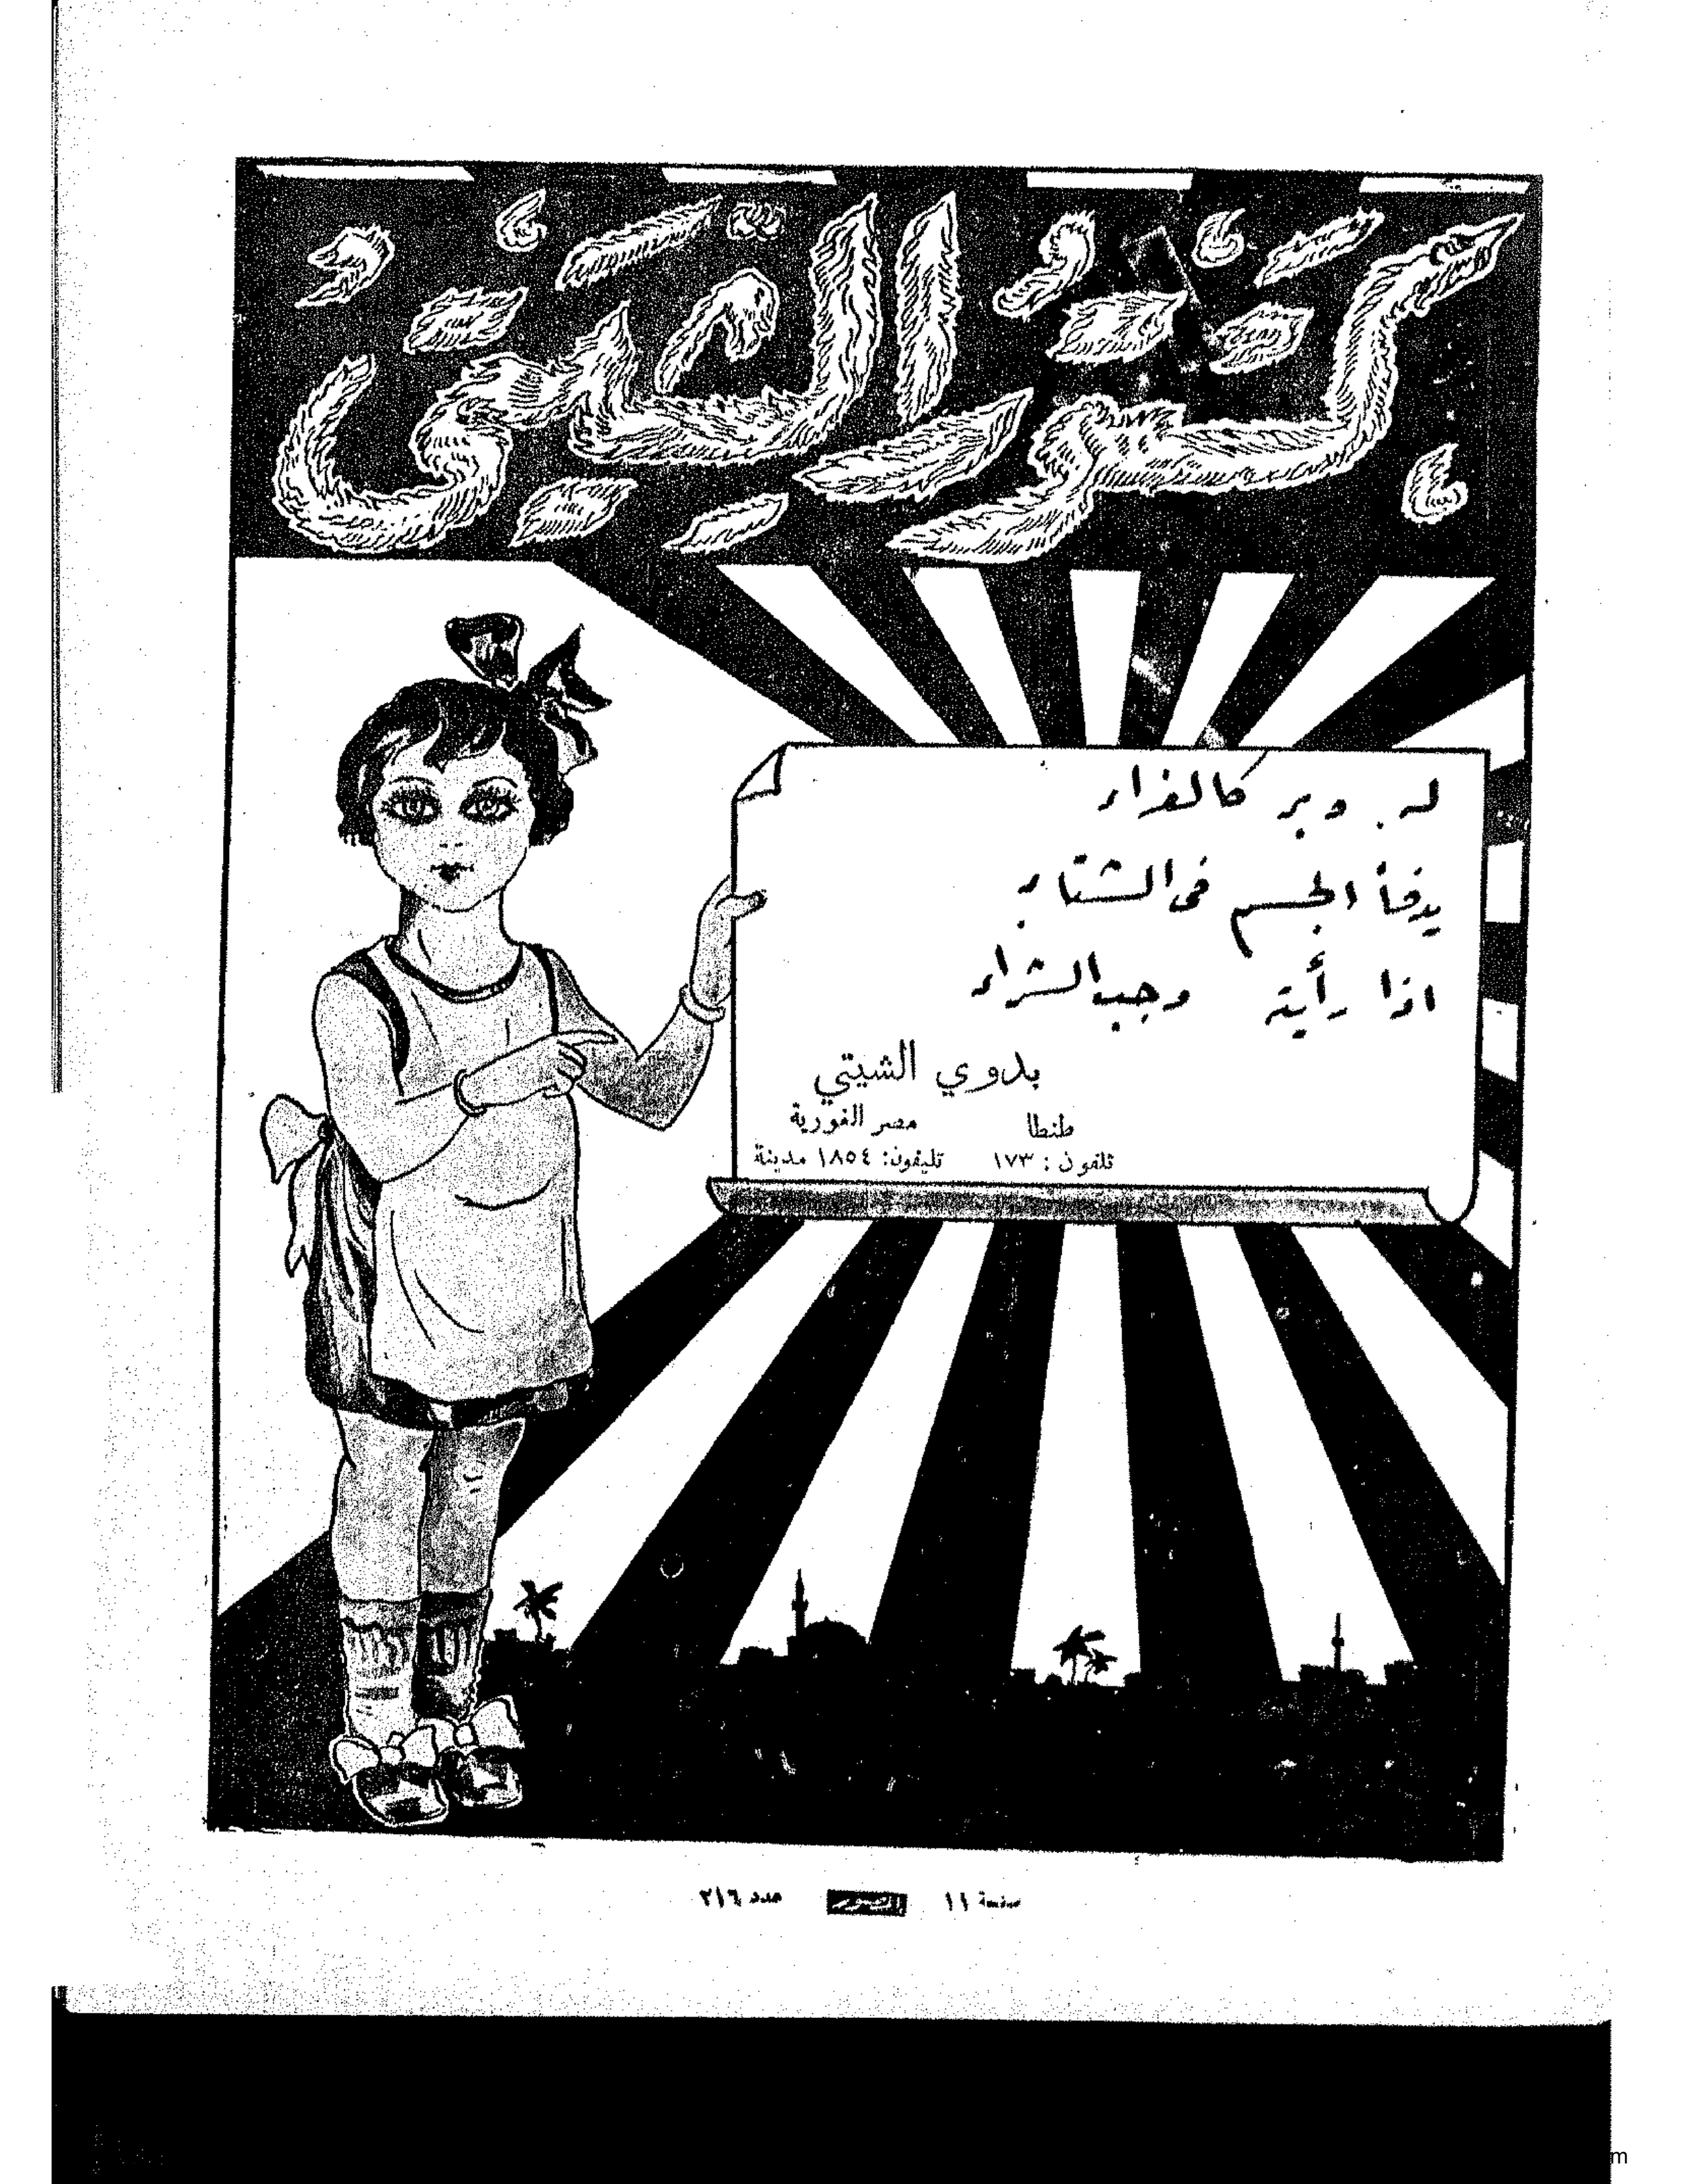 كستور الشيتى
له وبر كالفراء
يدفأ الجسم فى الشتاء
اذا رأيته وجب الشراء
بدوي الشيتي
طنطا مصر الغورية
تلفون : ١٧٣ تليفون: ١٨٥٤ مدينة
صفحة ١١ المصور عدد ٢١٦
m